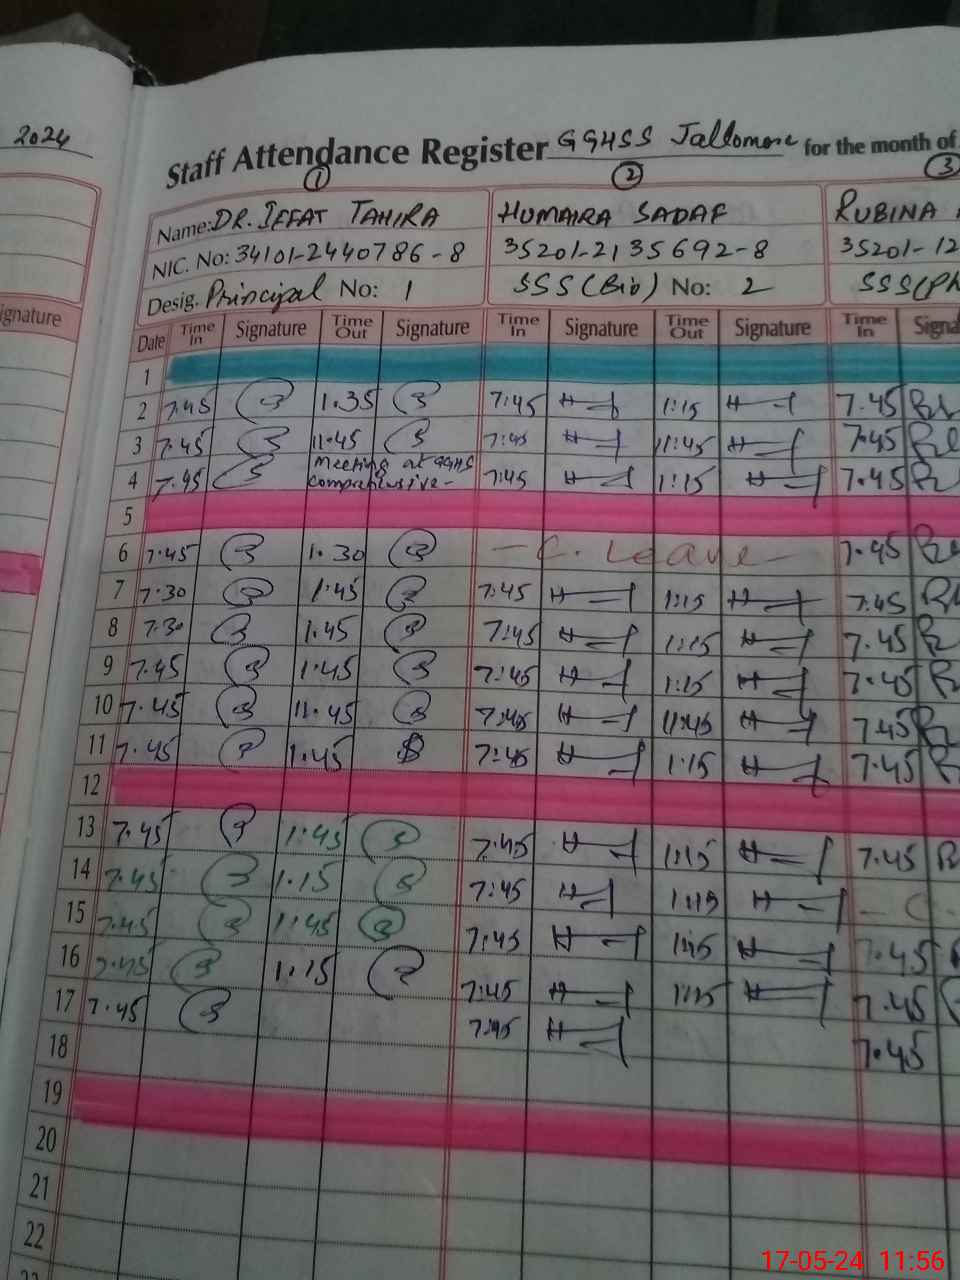 2024
Staff Attendance Register GGHSS Jallomore for the month of
1 2 3
Name: DR. IFFAT TAHIRA HUMAIRA SADAF RUBINA
NIC. No: 34101-2440786-8 35201-2135692-8 35201-12
Desig. Principal No: 1 SSS (Bio) No: 2 SSS (Ph
ignature Date Time In Signature Time Out Signature Time In Signature Time Out Signature Time In Signa
1
2 7.45 1.35 7:45 1:15 7.45
3 7.45 11.45 7:45 11:45 7.45
4 7.45 Meeting at GGHS Comprehensive- 7:45 1:15 7.45
5
6 7.45 1.30 - C. Leave - 7.45
7 7.30 1.45 7:45 1:15 7.45
8 7.30 1.45 7:45 1:15 7.45
9 7.45 1.45 7:45 1:15 7.45
10 7.45 11.45 7:45 11:45 7.45
11 7.45 1.45 7:45 1:15 7.45
12
13 7.45 1:45 7:45 1:15 7.45
14 7.45 1.15 7:45 1:15 - C.
15 7.45 1:45 7:45 1:15 7.45
16 7.45 1.15 7:45 1:15 7.45
17 7.45 7:45 7.45
18
19
20
21
22
17-05-24 11:56